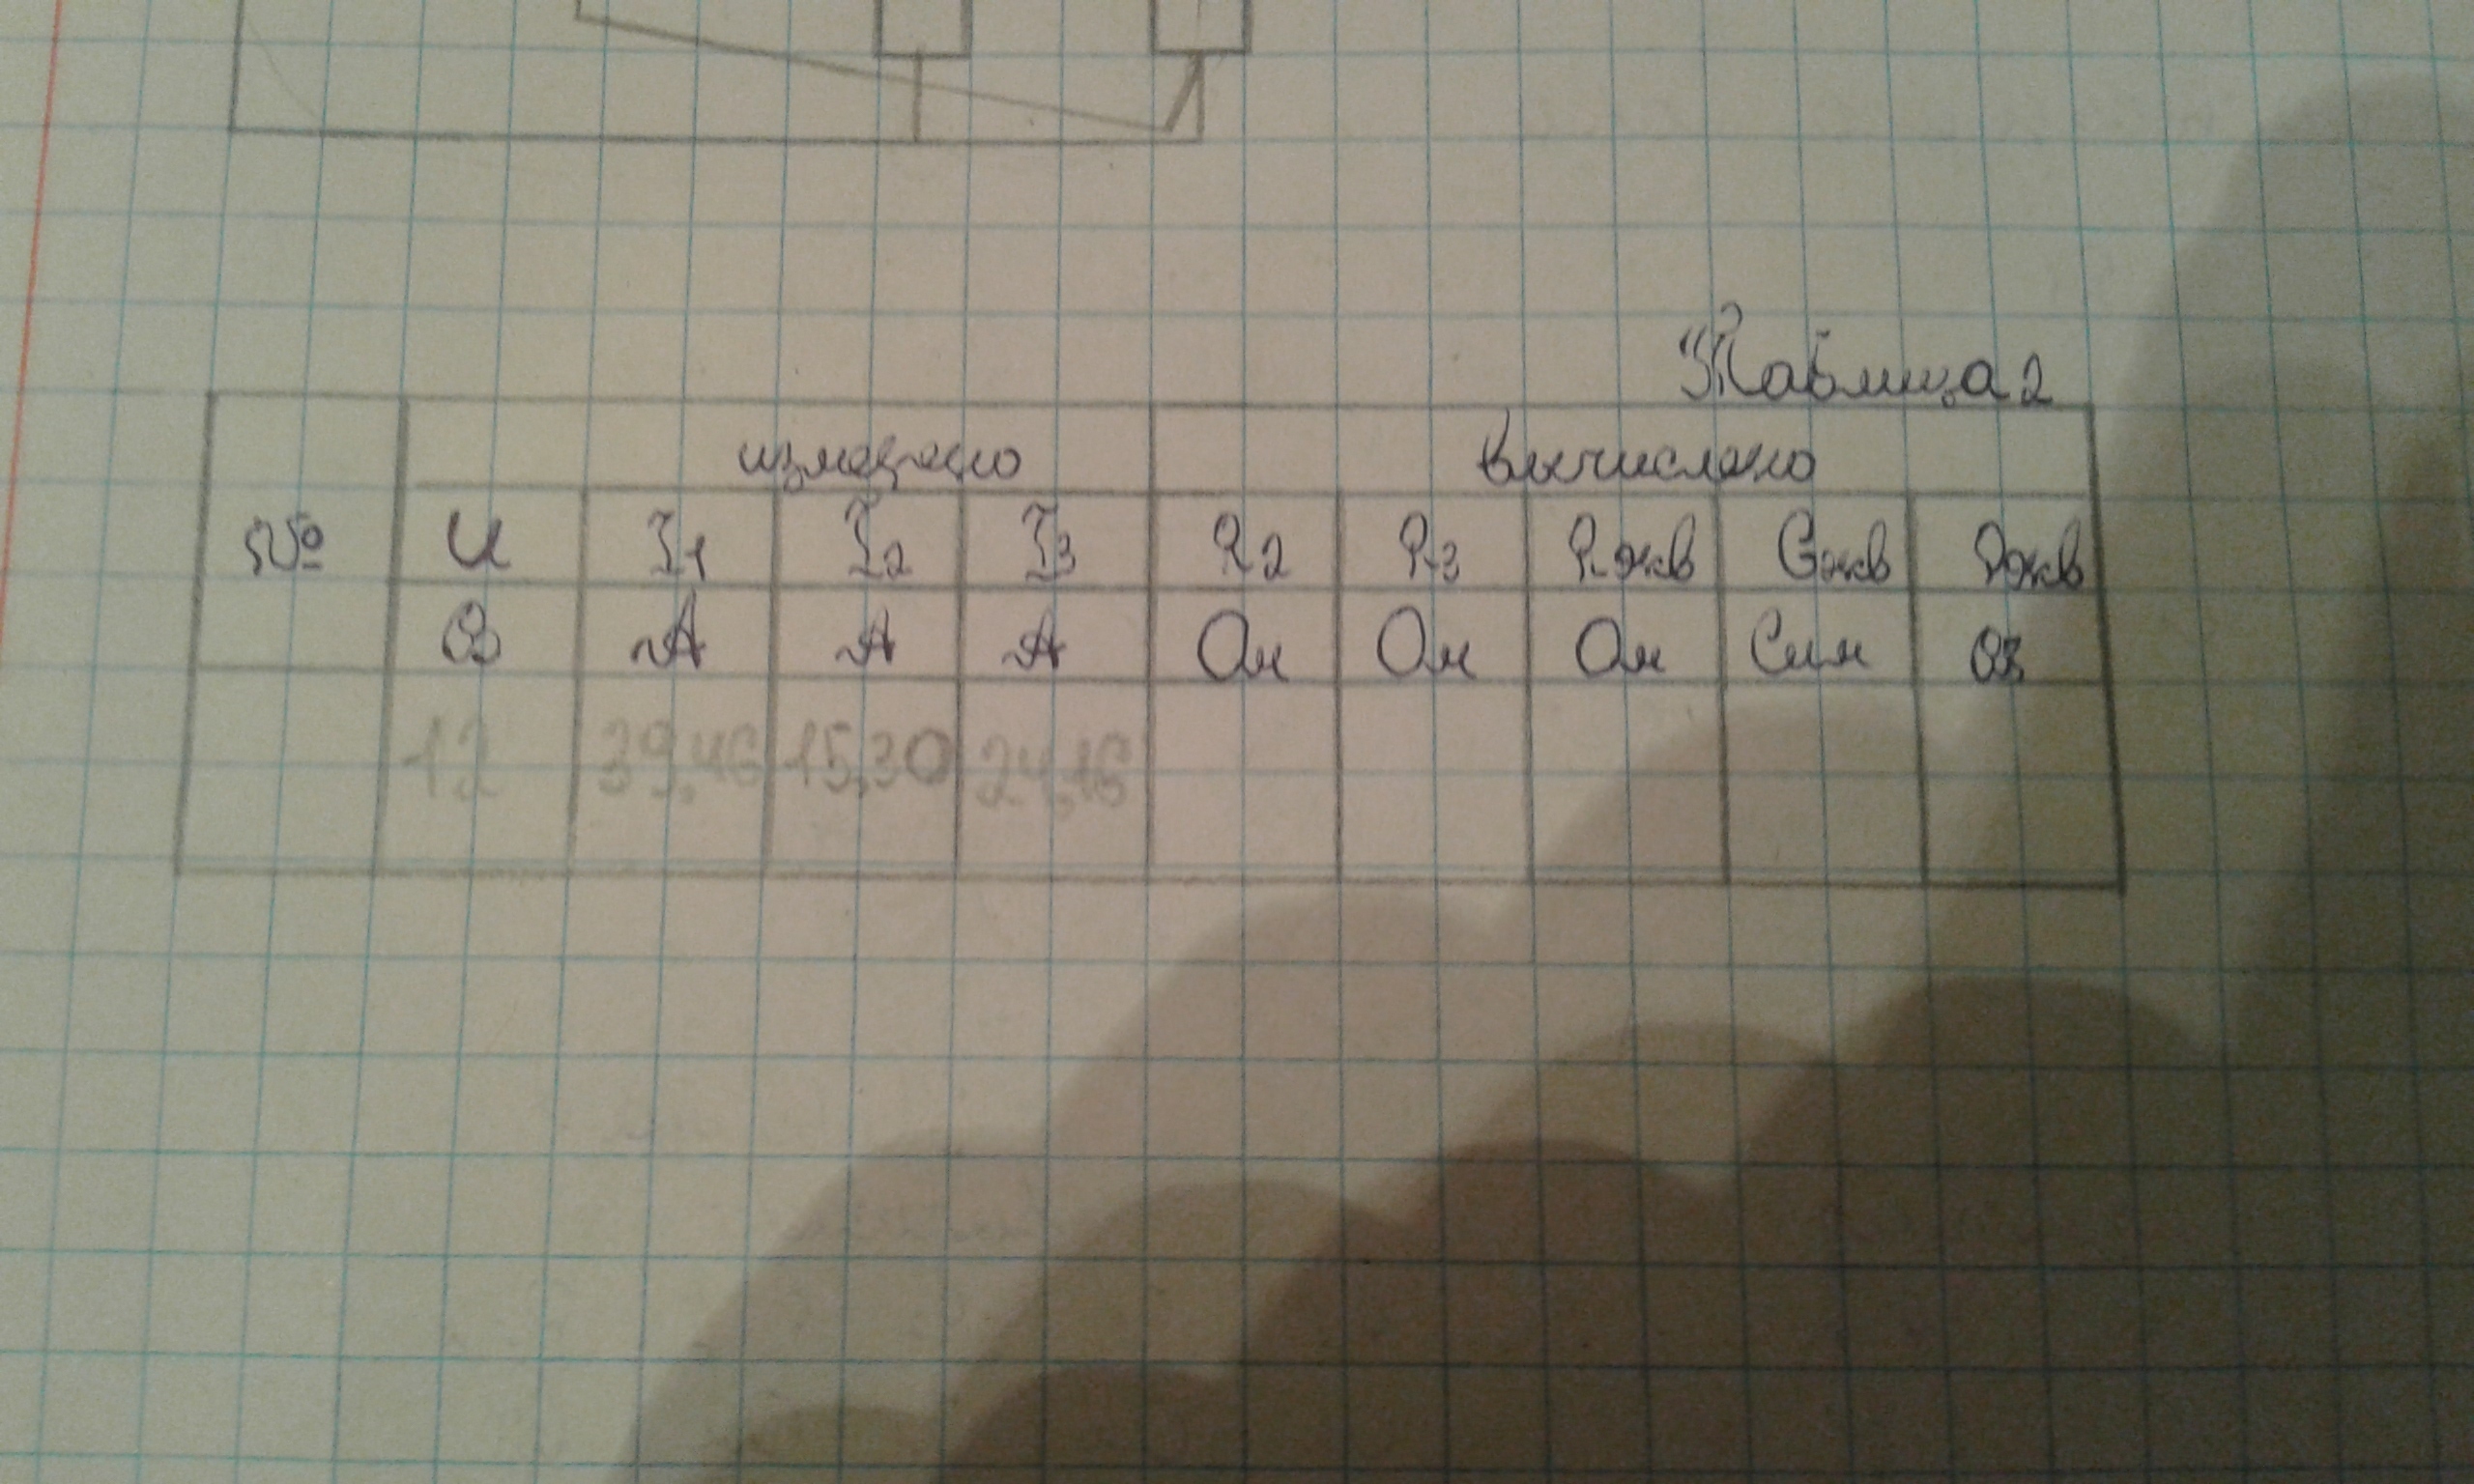 Таблица 2
измерено вычислено
№ U I1 I2 I3 R2 R3 Rэкв Gэкв Pэкв
В А А А Ом Ом Ом Сим Вт
12 39,46 15,30 24,16